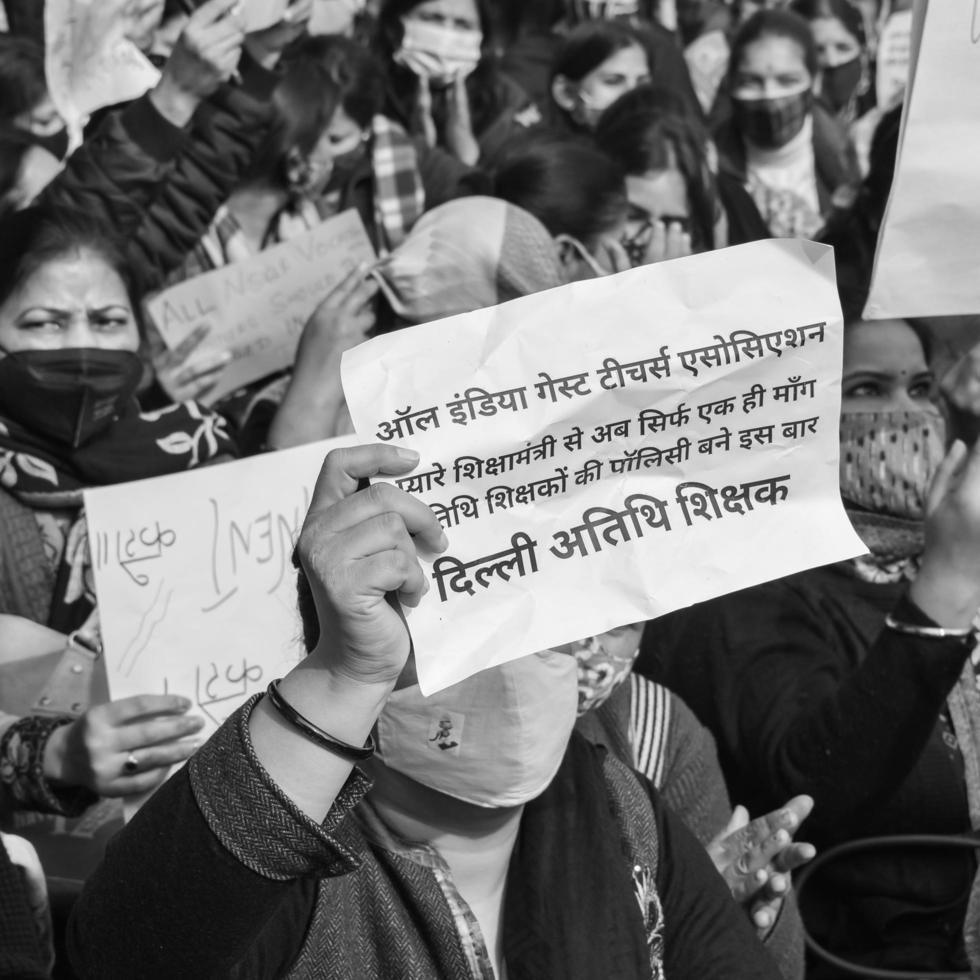 ALL
ऑल इंडिया गेस्ट टीचर्स एसोसिएशन
प्यारे शिक्षामंत्री से अब सिर्फ एक ही माँग
तिथि शिक्षकों की पॉलिसी बने इस बार
दिल्ली अतिथि शिक्षक
करो॥
करो